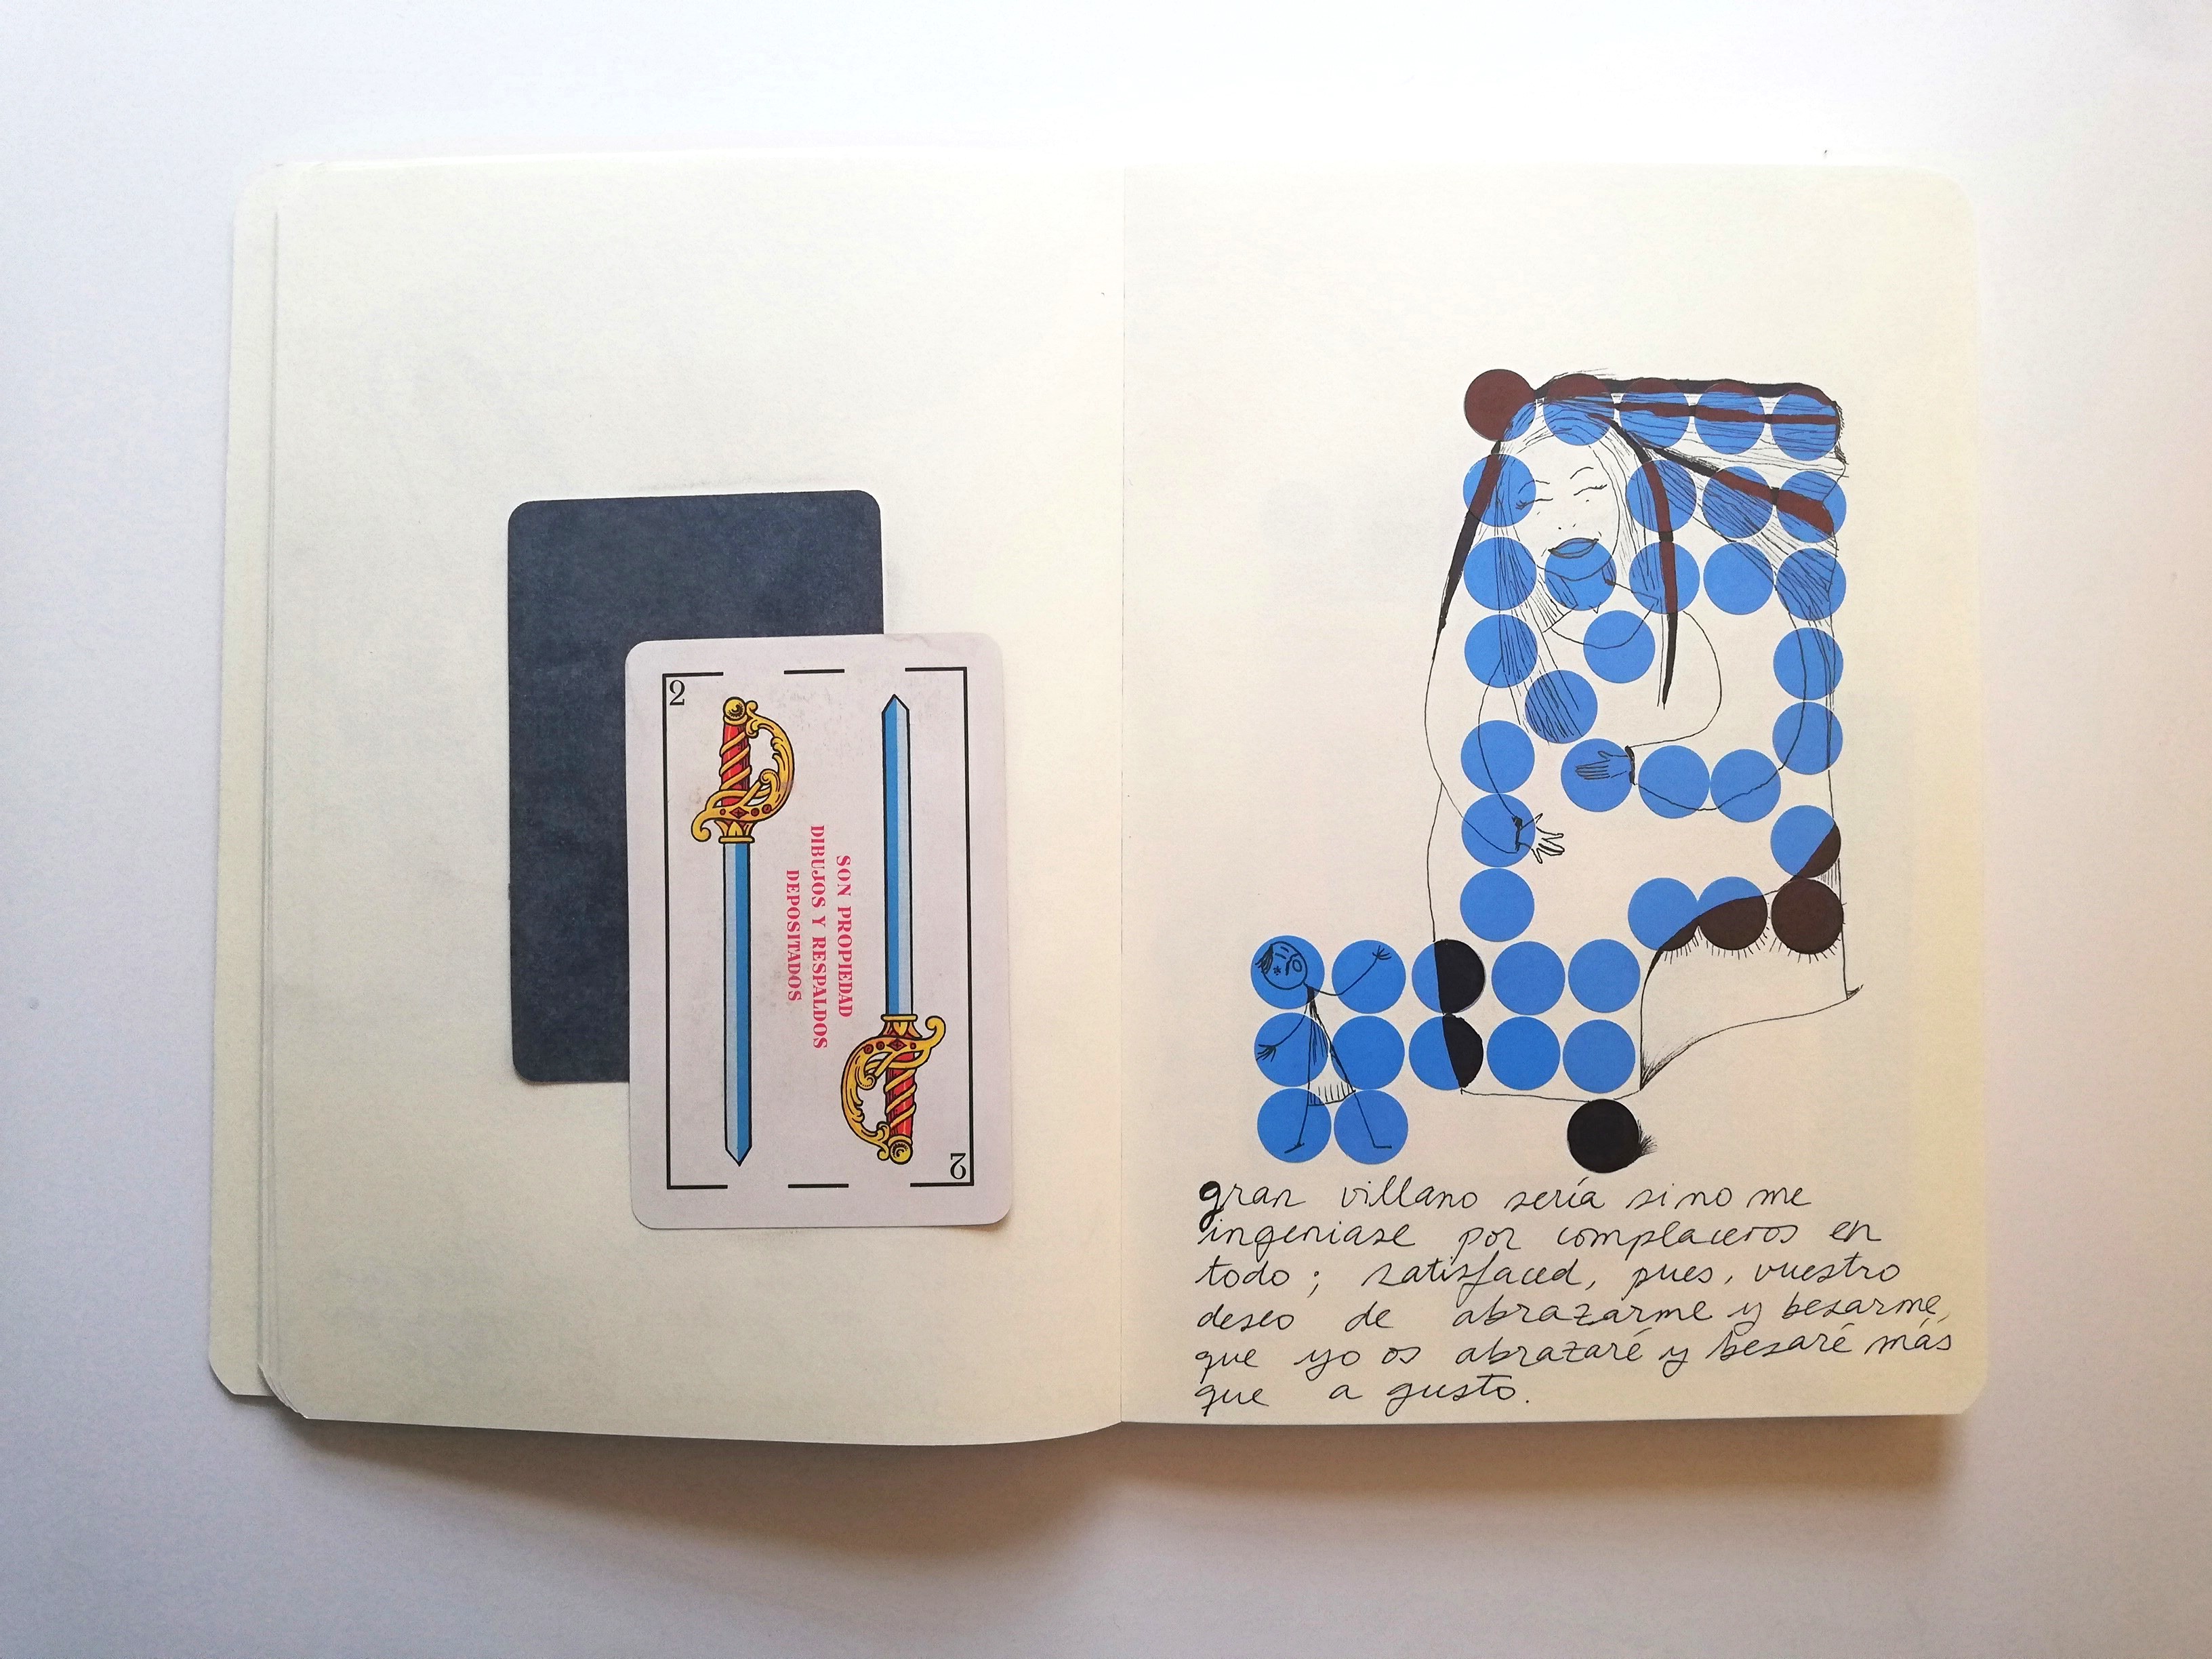 2
SON PROPIEDAD
DIBUJOS Y RESPALDOS
DEPOSITADOS
2
gran villano sería si no me
ingeniase por complaceros en
todo; satisfaced, pues, vuestro
deseo de abrazarme y besarme,
que yo os abrazaré y besaré más
que a gusto.